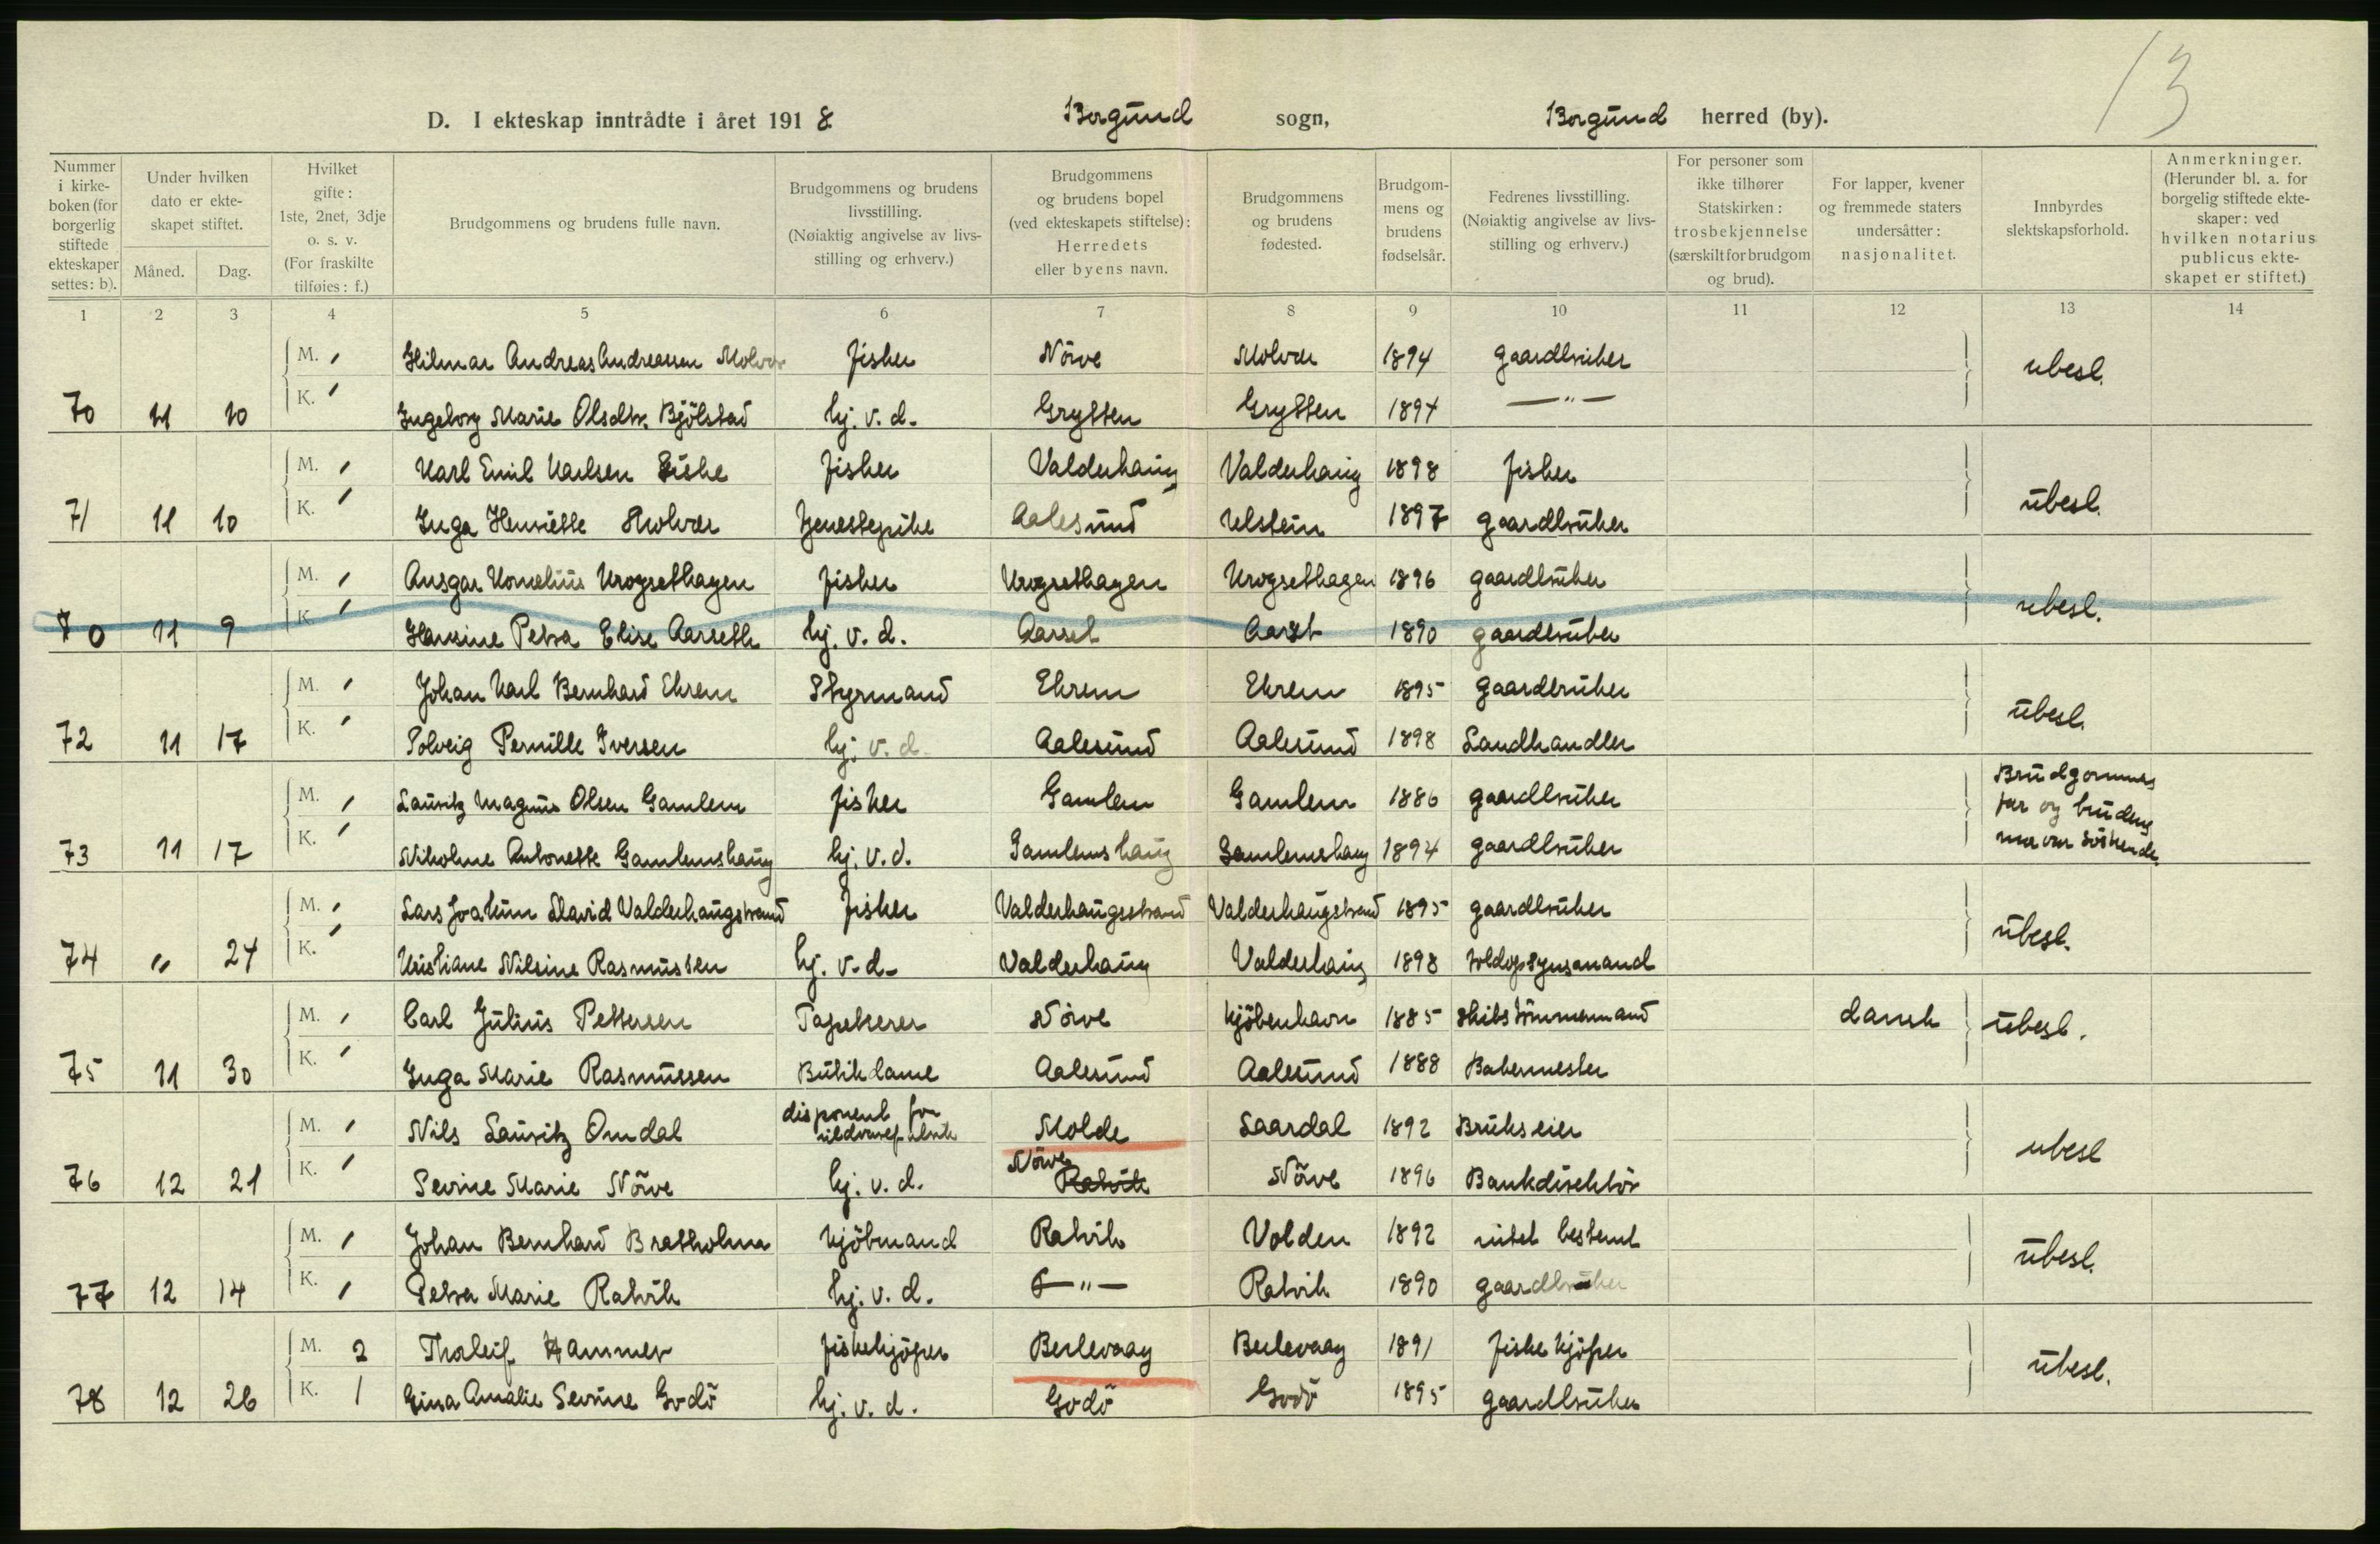 13
D. I ekteskap inntrådte i året 1918 Borgund sogn, Borgund herred (by).
Nummer i kirkeboken (for borgerlig stiftede ekteskaper settes: b).
Under hvilken dato er ekteskapet stiftet.
Måned. Dag.
Hvilket gifte: 1ste, 2net, 3dje o. s. v. (For fraskilte tilføies: f.)
Brudgommens og brudens fulle navn.
Brudgommens og brudens livsstilling. (Nøiaktig angivelse av livsstilling og erhverv.)
Brudgommens og brudens bopel (ved ekteskapets stiftelse): Herredets eller byens navn.
Brudgommens og brudens fødested.
Brudgommens og brudens fødselsår.
Fedrenes livsstilling. (Nøiaktig angivelse av livsstilling og erhverv.)
For personer som ikke tilhører Statskirken: trosbekjennelse (særskilt for brudgom og brud).
For lapper, kvener og fremmede staters undersåtter: nasjonalitet.
Innbyrdes slektskapsforhold.
Anmerkninger. (Herunder bl. a. for borgelig stiftede ekteskaper: ved hvilken notarius publicus ekteskapet er stiftet.)
1 2 3 4 5 6 7 8 9 10 11 12 13 14
M. / Hilmar Andreas Andreassen Molvær fisker Nörve Molvær 1894 gaardbruker ubesl.
70 11 10 K. / Ingeborg Marie Olsdtr. Bjölstad hj. v. d. Grytten Grytten 1894 — " —
M. / Karl Emil Karlsen fisker Valderhaug Valderhaug 1898 fisker ubesl.
71 11 10 K. / Inga Henriette Molvær tjenestepike Aalesund Ulstein 1897 gaardbruker
M. / Ansgar Kornelius Krogsethagen fisker Krogsethagen Krogsethagen 1896 gaardbruker ubesl.
70 11 9 K. / Hansine Petra Elise Aarseth hj. v. d. Aarset Aarset 1890 gaardbruker
M. / Johan Karl Bernhard Ekrem Styrmand Ekrem Ekrem 1895 gaardbruker ubesl.
72 11 17 K. / Solveig Pernille Iversen hj. v. d. Aalesund Aalesund 1898 Landhandler
M. / Lauritz Magnus Olsen Gamlem fisker Gamlem Gamlem 1886 gaardbruker Brudgommens far og brudens mor var söskende.
73 11 17 K. / Nikoline Antonette Gamlemshaug hj. v. d. Gamlemshaug Gamlemshaug 1894 gaardbruker
M. / Lars Joakim David Valderhaugstrand fisker Valderhaugsstrand Valderhaugstrand 1895 gaardbruker ubesl.
74 " 24 K. / Kristiane Nilsine Rasmussen hj. v. d. Valderhaug Valderhaug 1898 toldopsynsmand
M. / Carl Julius Pettersen Tapetserer Nörve Kjöbenhavn 1885 skibstömmermand dansk ubesl.
75 11 30 K. / Inga Marie Rasmussen Butikdame Aalesund Aalesund 1888 Bakermester
M. / Nils Lauritz Omdal disponent for Molde Laardal 1892 Brukseier ubesl
76 12 21 K. / Sevrine Marie Nörve hj. v. d. Nörve Ratvik Nörve 1896 Bankdirektör
M. / Johan Bernhard Bratholm Kjöbmand Ratvik Volden 1892 intet bestemt ubesl.
77 12 14 K. / Petra Marie Ratvik hj. v. d. — " — Ratvik 1890 gaardbruker
M. 2 Thorleif Hammer fiskekjöper Berlevaag Berlevaag 1891 fiskekjöper ubesl.
78 12 26 K. 1 Gina Amalie Sevrine Godö hj. v. d. Godö Godö 1895 gaardbruker